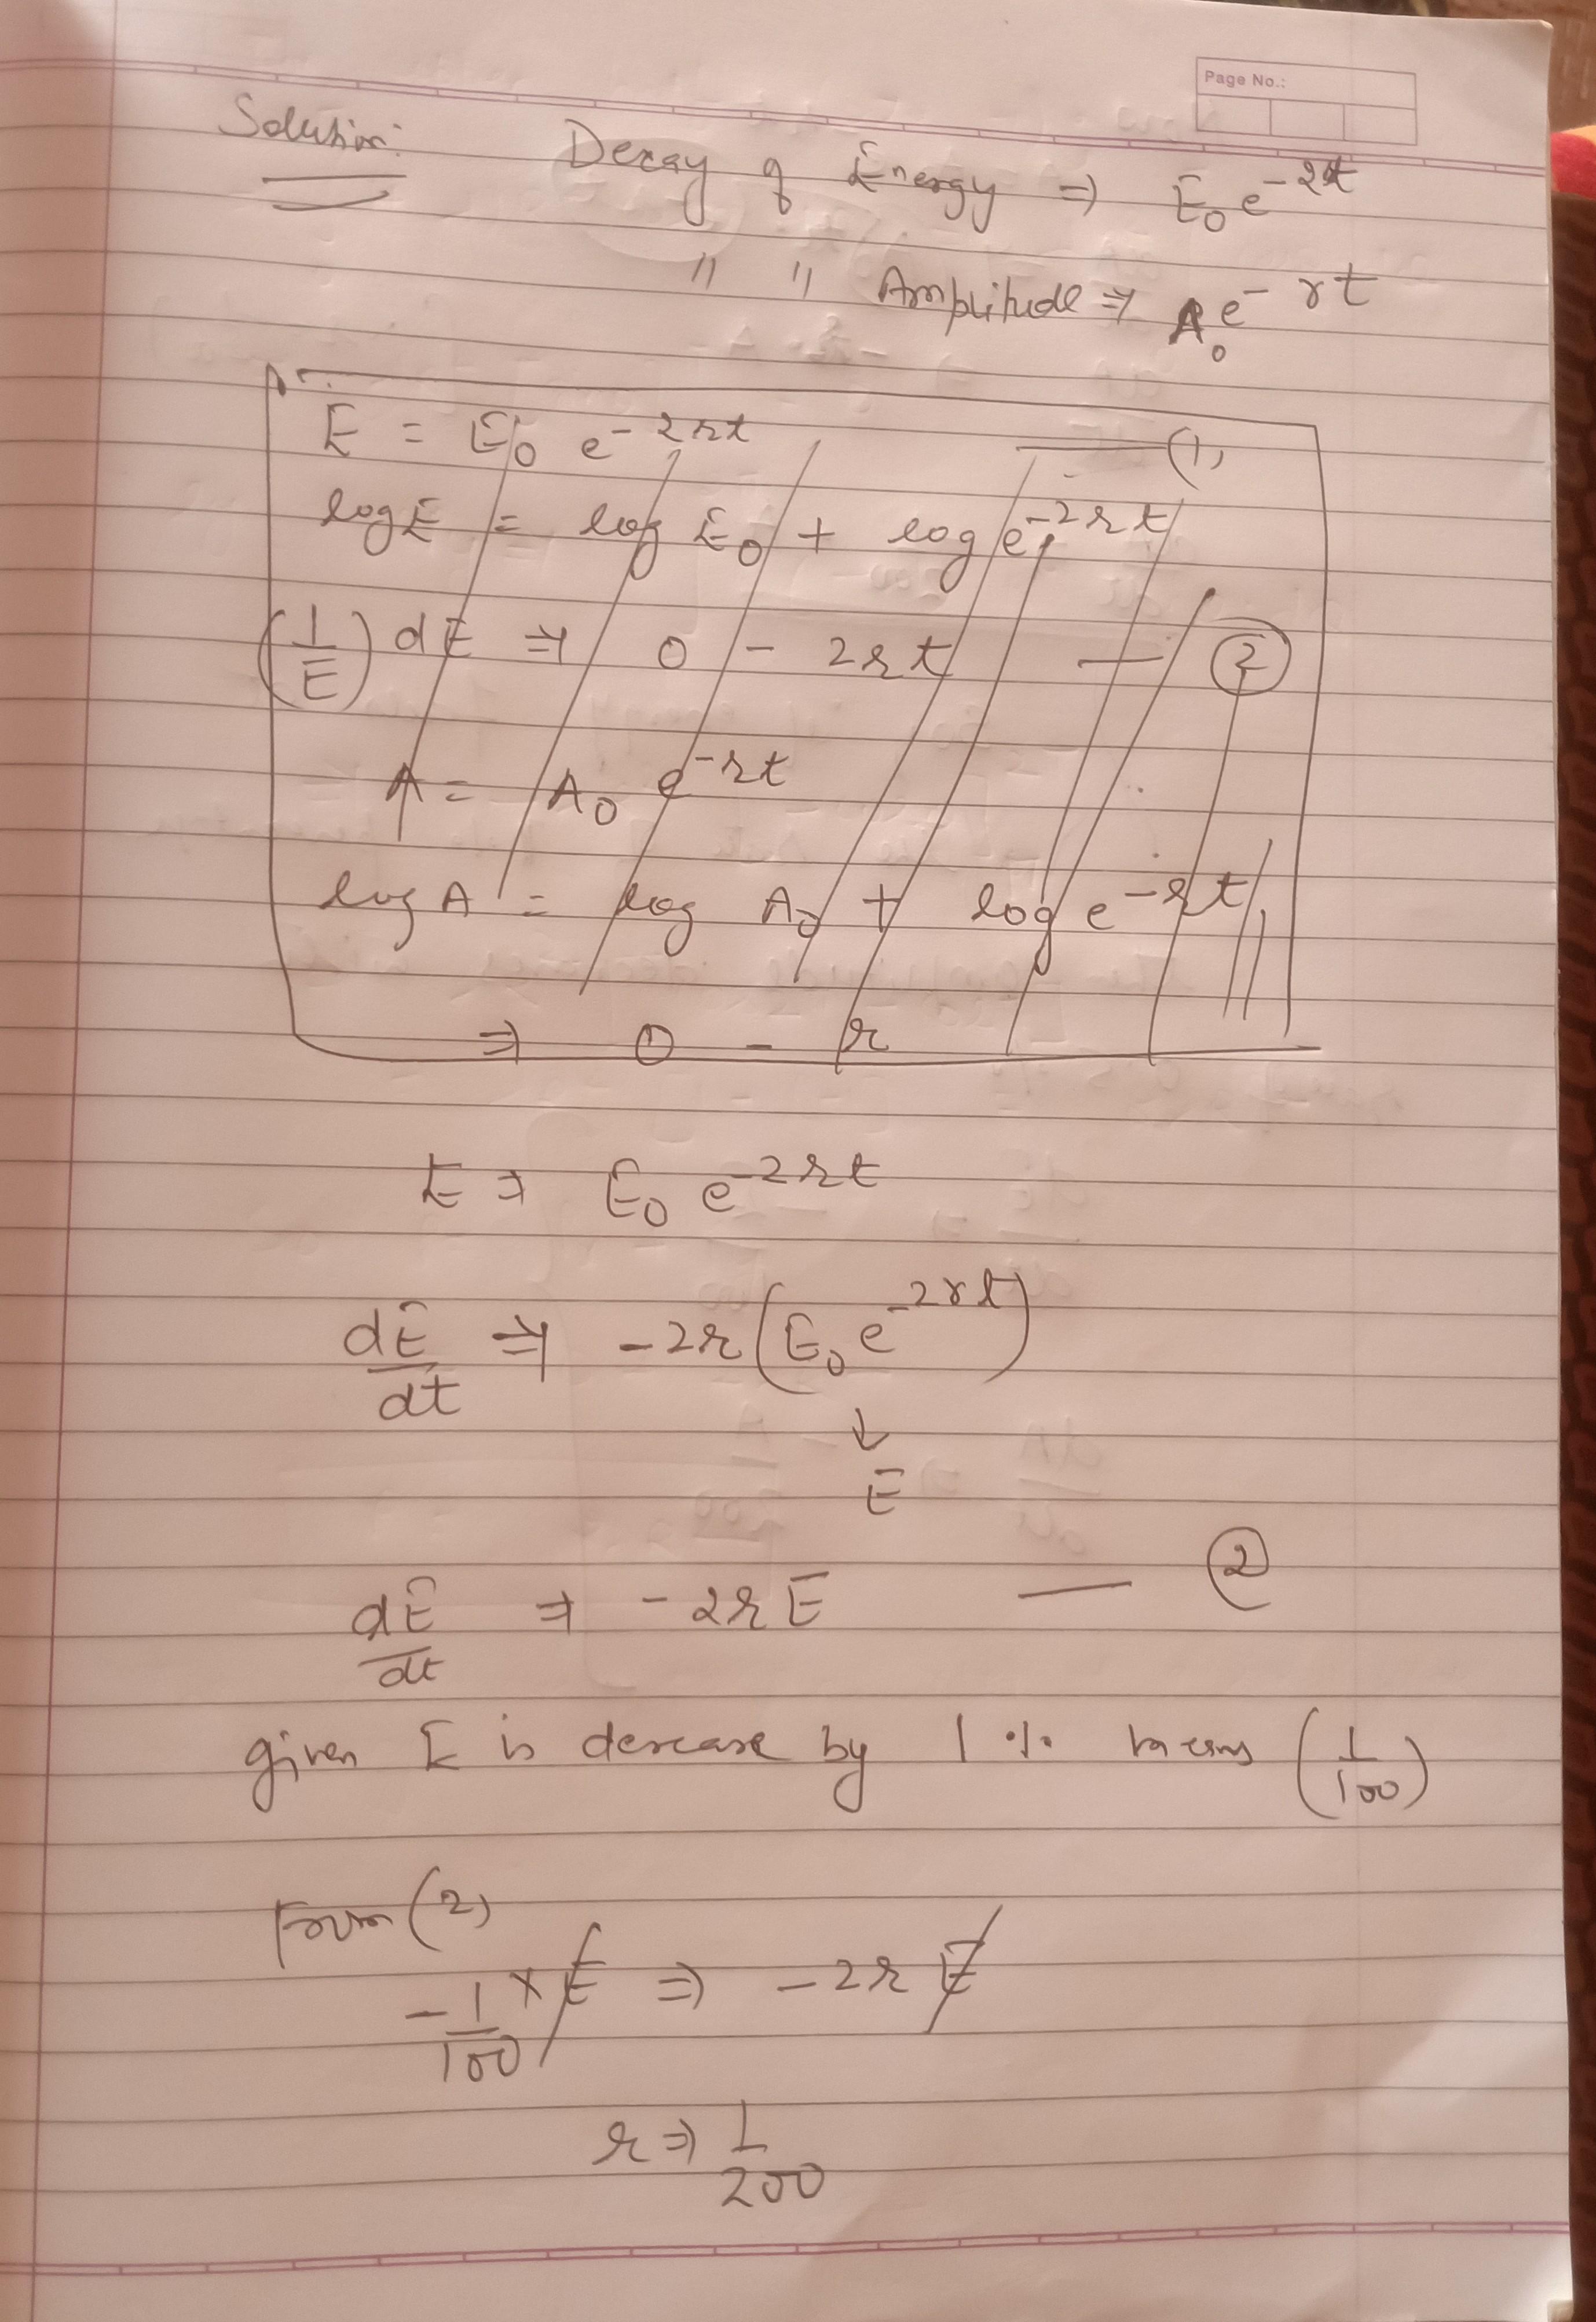 Page No.:
Solution: Decay of Energy ⇒ E₀ e^-2rt
" " Amplitude ⇒ A₀ e^- rt
E = E₀ e^-2rt — (1)
log E = log E₀ + log e^-2rt
(1/E) dE ⇒ 0 - 2rt — (2)
A = A₀ e^-rt
log A = log A₀ + log e^-rt
⇒ 0 - r
E ⇒ E₀ e^-2rt
dE/dt ⇒ -2r (E₀ e^-2rt)
↓
E
dE/dt ⇒ -2rE — (2)
given E is decrease by 1 % means (1/100)
From (2)
-1/100 × E ⇒ -2r E
r ⇒ 1/200